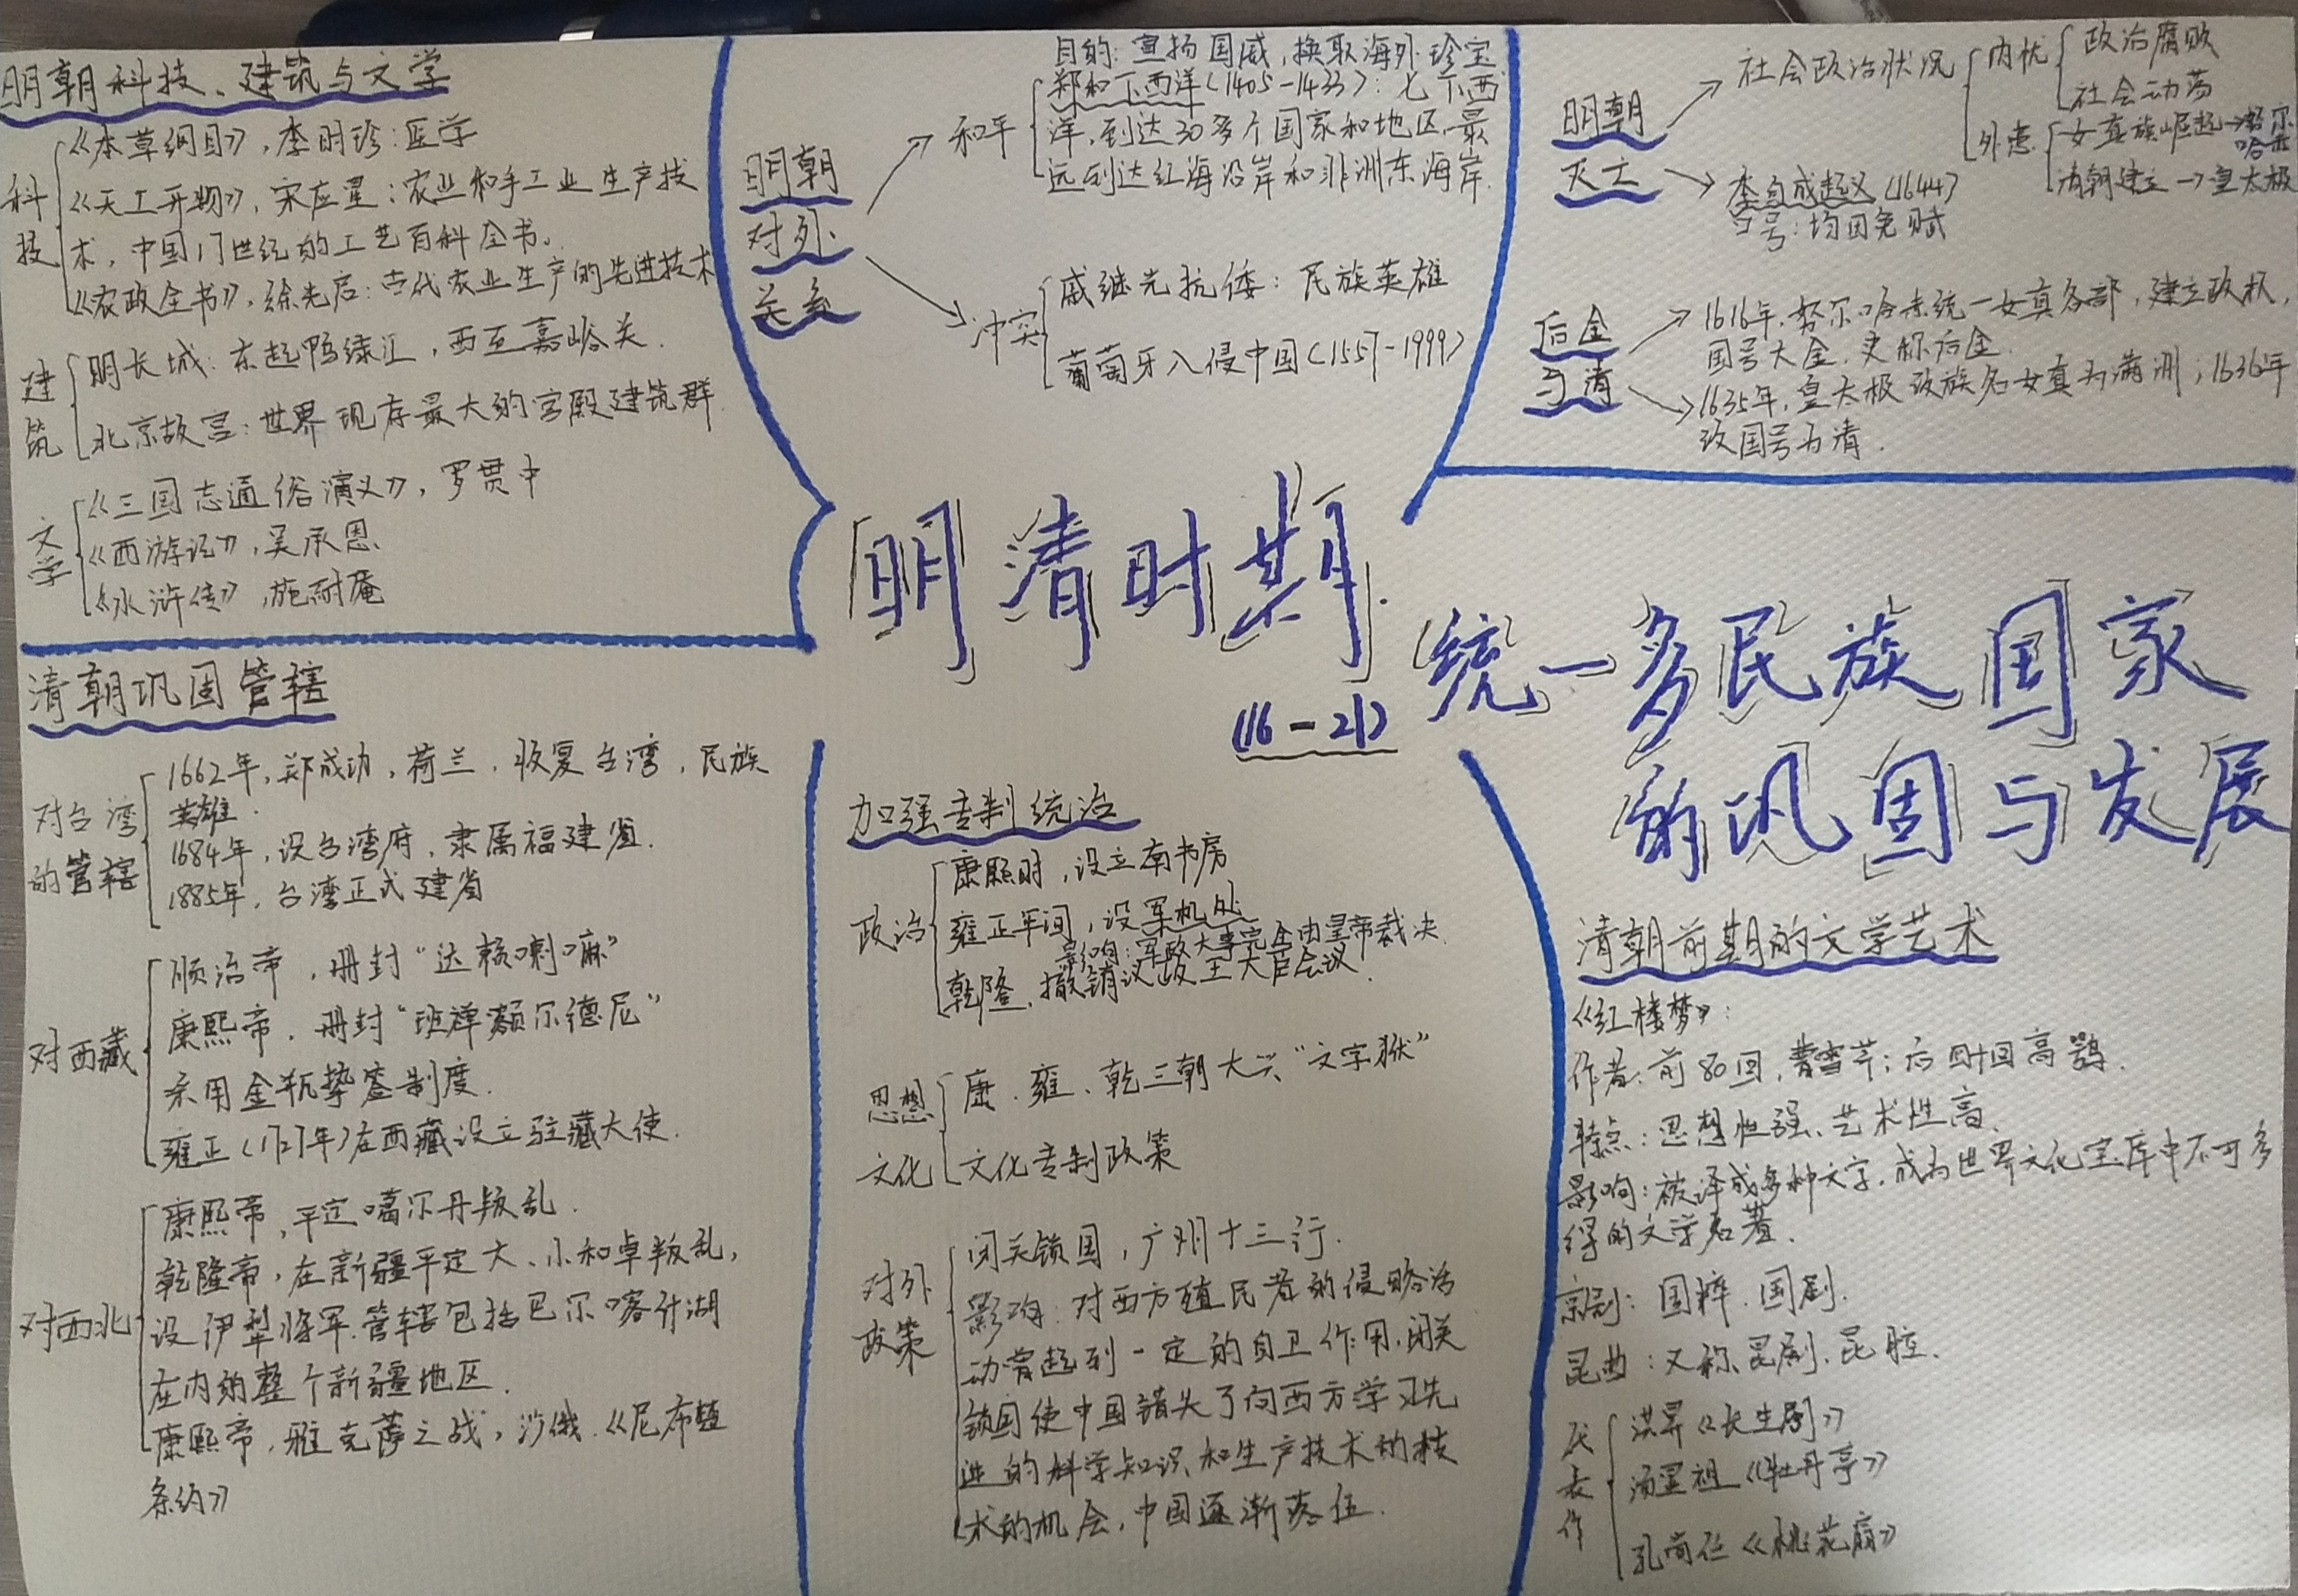 明朝科技、建筑与文学
科技
《本草纲目》,李时珍:医学
《天工开物》,宋应星:农业和手工业生产技
术,中国17世纪的工艺百科全书。
《农政全书》,徐光启:古代农业生产的先进技术
建筑
明长城:东起鸭绿江,西至嘉峪关.
北京故宫:世界现存最大的宫殿建筑群.
文学
《三国志通俗演义》,罗贯中
《西游记》,吴承恩
《水浒传》,施耐庵
明朝
对外
关系
和平
目的:宣扬国威,换取海外珍宝
郑和下西洋(1405-1433):七下西
洋,到达30多个国家和地区,最
远到达红海沿岸和非洲东海岸.
冲突
戚继光抗倭:民族英雄
葡萄牙入侵中国(1557-1999)
明朝
灭亡
社会政治状况
内忧
政治腐败
社会动荡
外患
女真族崛起→努尔
哈赤
清朝建立→皇太极
李自成起义(1644)
口号:均田免赋
后金
与清
1616年,努尔哈赤统一女真各部,建立政权,
国号大金,史称后金.
1635年,皇太极改族名女真为满洲;1636年
改国号为清.
明清时期
统一多民族国家
的巩固与发展
(16-21)
清朝巩固管辖
对台湾
的管辖
1662年,郑成功,荷兰,收复台湾,民族
英雄.
1684年,设台湾府,隶属福建省.
1885年,台湾正式建省
对西藏
顺治帝,册封“达赖喇嘛”
康熙帝,册封“班禅额尔德尼”
采用金瓶掣签制度.
雍正(1727年)在西藏设立驻藏大使.
对西北
康熙帝,平定噶尔丹叛乱.
乾隆帝,在新疆平定大、小和卓叛乱,
设伊犁将军.管辖包括巴尔喀什湖
在内的整个新疆地区.
康熙帝,雅克萨之战,沙俄.《尼布楚
条约》
加强专制统治
政治
康熙时,设立南书房
雍正年间,设军机处
影响:军政大事完全由皇帝裁决.
乾隆,撤销议政王大臣会议.
思想
文化
康、雍、乾三朝大兴“文字狱”
文化专制政策
对外
政策
闭关锁国,广州十三行.
影响:对西方殖民者的侵略活
动曾起到一定的自卫作用,闭关
锁国使中国错失了向西方学习先
进的科学知识和生产技术的技
术的机会,中国逐渐落伍.
清朝前期的文学艺术
《红楼梦》:
作者:前80回,曹雪芹;后四十回高鹗.
特点:思想性强、艺术性高.
影响:被译成多种文字,成为世界文化宝库中不可多
得的文学名著.
京剧:国粹.国剧.
昆曲:又称昆剧、昆腔.
代表作
洪昇《长生殿》
汤显祖《牡丹亭》
孔尚任《桃花扇》